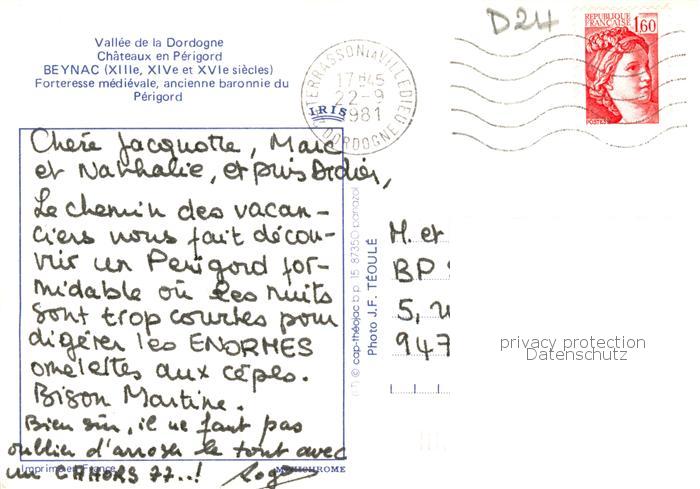 D24
Vallée de la Dordogne
Châteaux en Périgord
BEYNAC (XIIIe, XIVe et XVIe siècles)
Forteresse médiévale, ancienne baronnie du
Périgord
TERRASSON LA VILLEDIEU
17H45
22-9
1981
DORDOGNE
REPUBLIQUE
FRANÇAISE
1,60
POSTES
IRIS
Chère Jacquotte, Marc
et Nathalie, et puis Didier,
Le chemin des vacan-
ciers nous fait décou-
vrir un Périgord for-
midable où les nuits
sont trop courtes pour
digérer les ENORMES
omelettes aux cèpes.
Bison Martine.
Bien sûr, il ne faut pas
oublier d'arroser le tout avec
un CAHORS 77..!
Imprimé en France
MEXICHROME
© cap-théojac b.p. 15 87350 panazol
Photo J.F. TÉOULÉ
M. et
BP
5,
947
privacy protection
Datenschutz